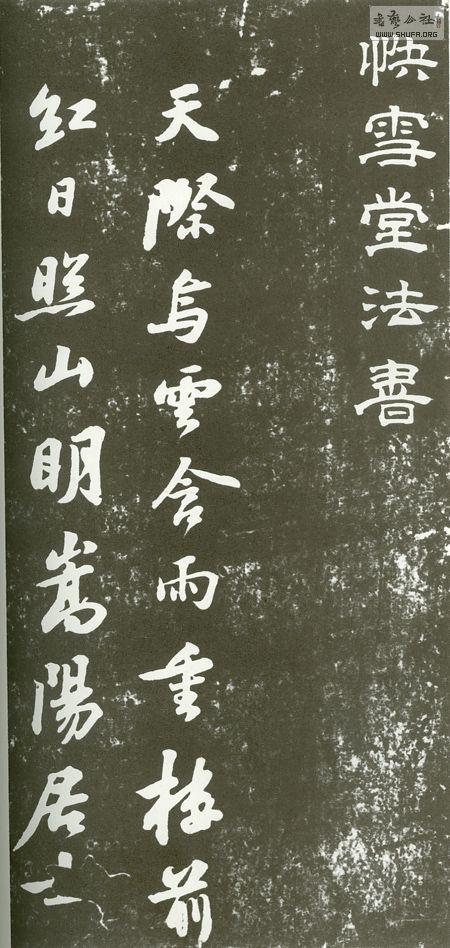 書藝公社
WWW.SHUFA.ORG
快雪堂法書
天際烏雲含雨重樓前
紅日照山明嵩陽居士